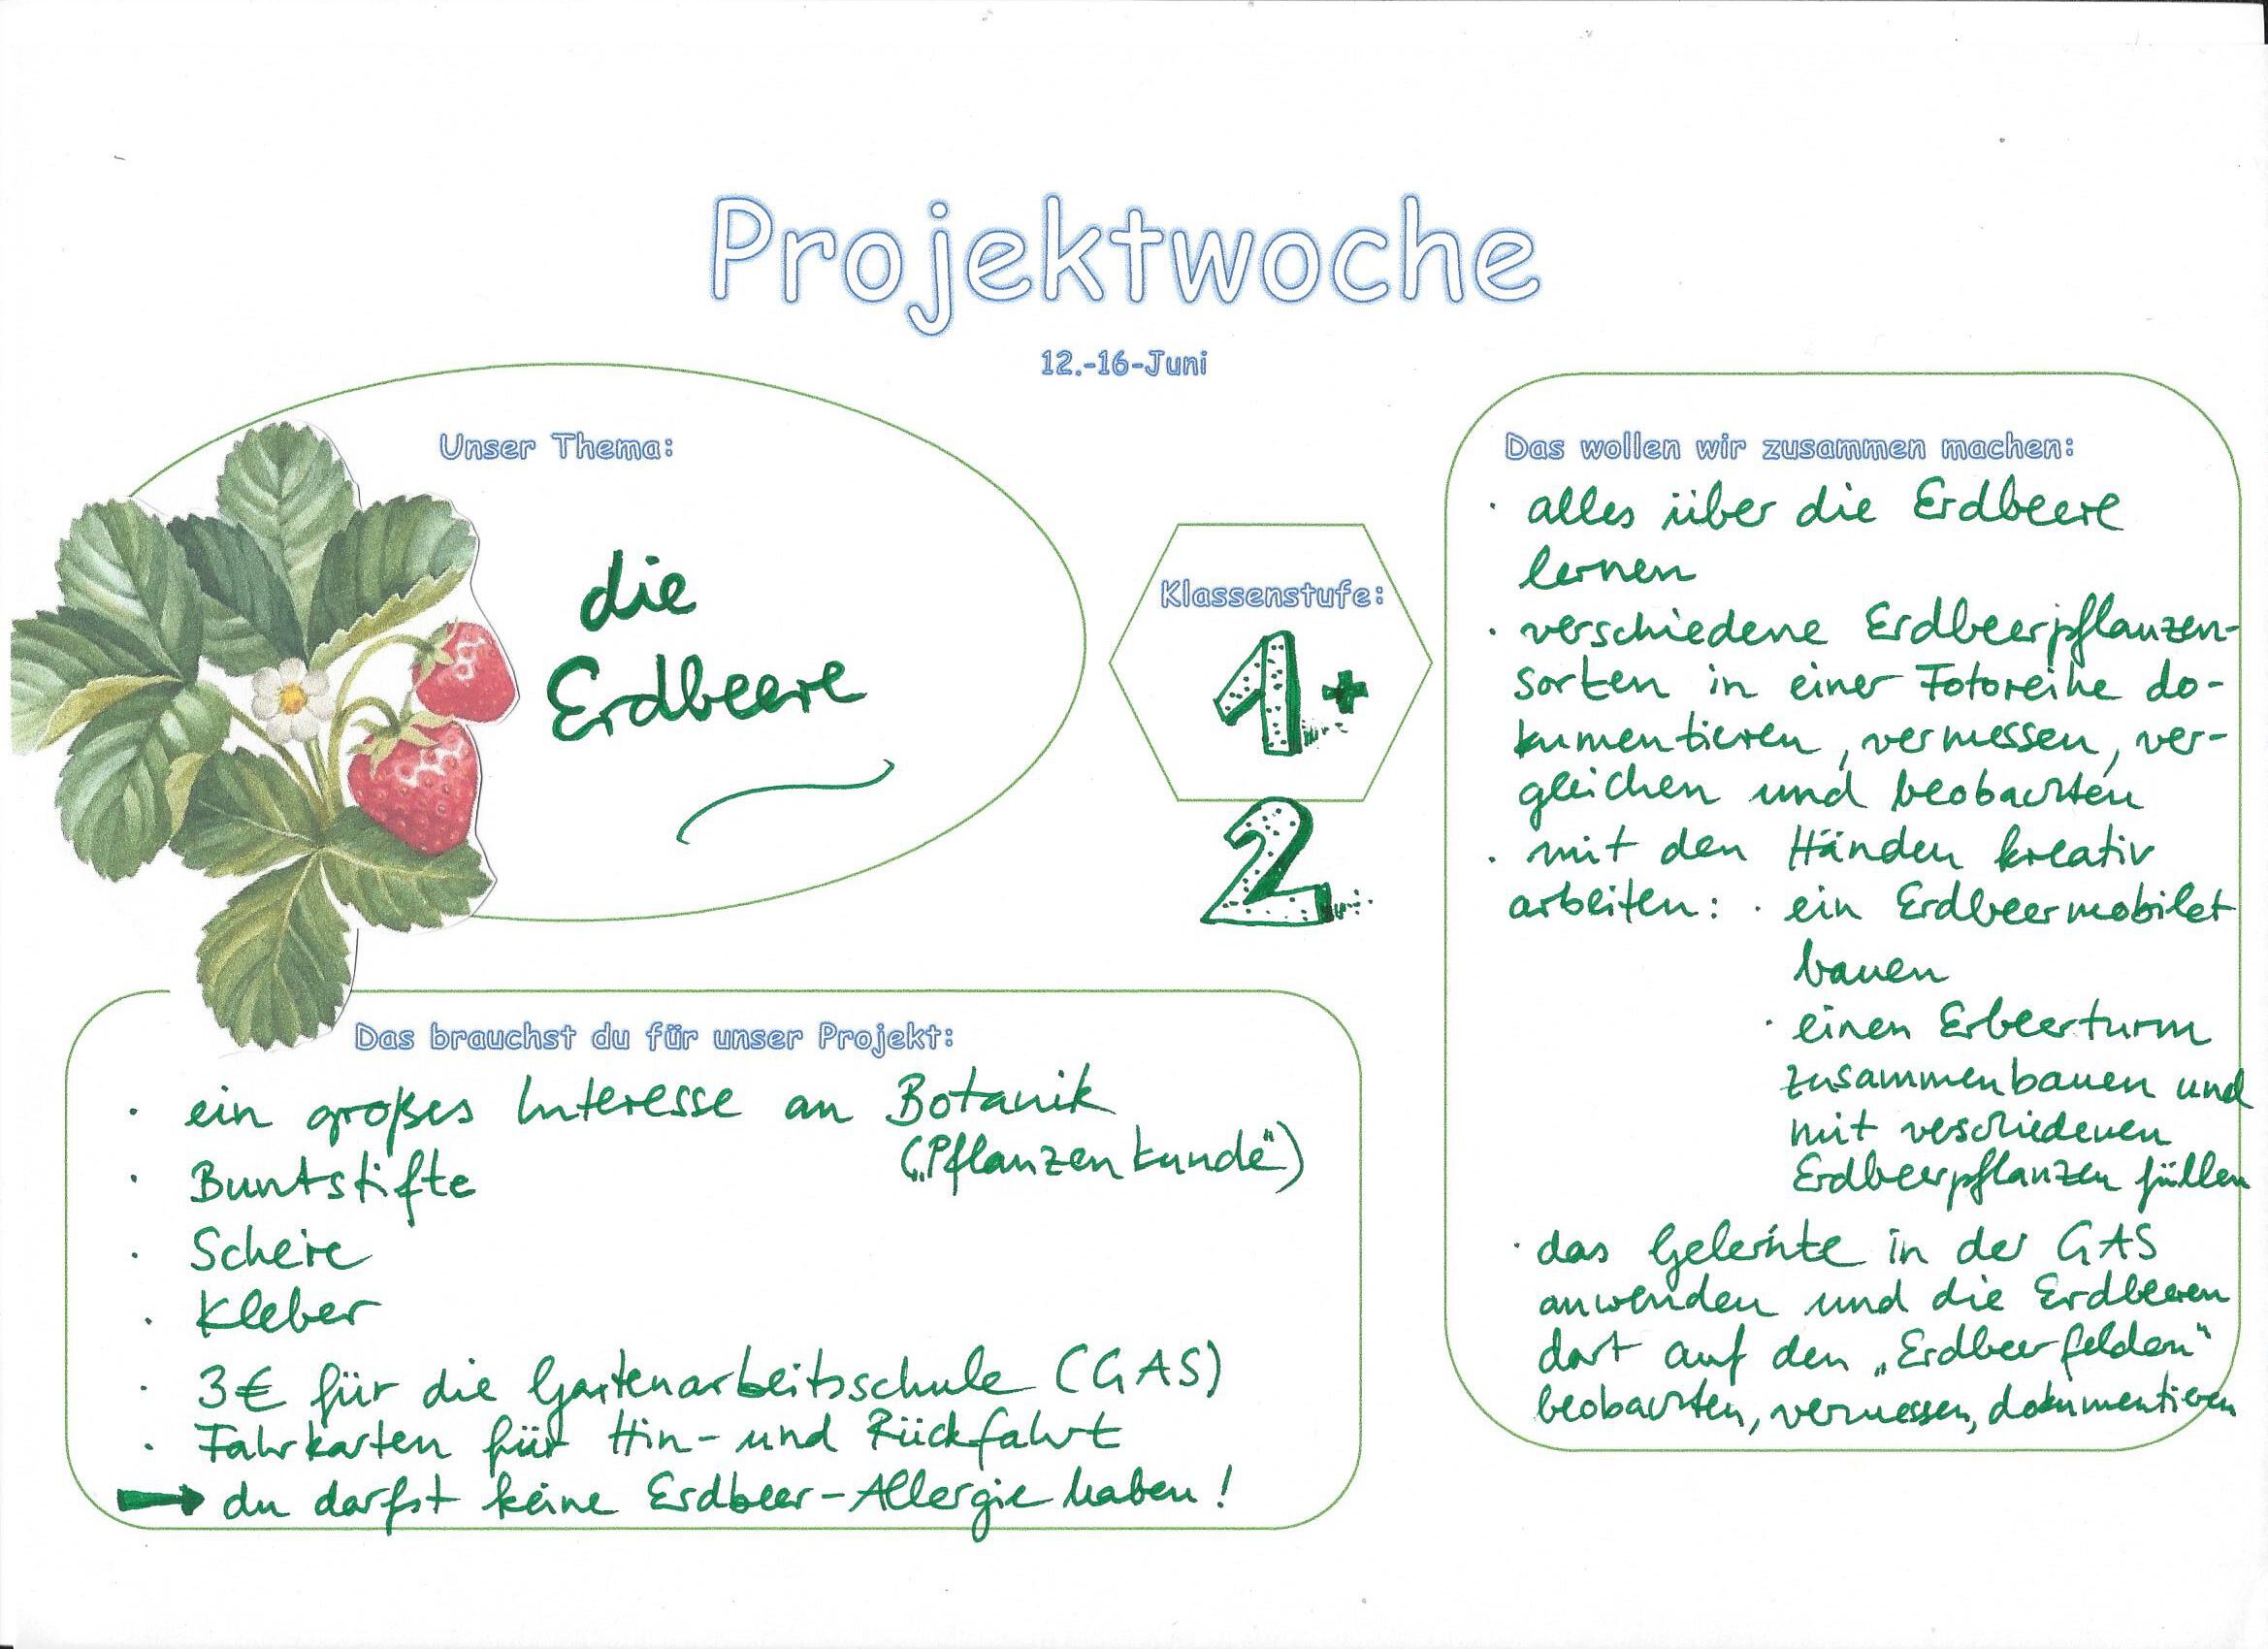 Projektwoche
12.-16-Juni
Unser Thema:
die
Erdbeere
Klassenstufe:
1+
2
Das wollen wir zusammen machen:
· alles über die Erdbeere
lernen
· verschiedene Erdbeerpflanzen-
sorten in einer Fotoreihe do-
kumentieren, vermessen, ver-
gleichen und beobachten
· mit den Händen kreativ
arbeiten: · ein Erdbeermobilet
bauen
· einen Erbeerturm
zusammenbauen und
mit verschiedenen
Erdbeerpflanzen füllen
· das Gelernte in der GAS
anwenden und die Erdbeeren
dort auf den „Erdbeerfeldern"
beobachten, vermessen, dokumentieren
Das brauchst du für unser Projekt:
· ein großes Interesse an Botanik
(„Pflanzenkunde")
· Buntstifte
· Schere
· Kleber
· 3€ für die Gartenarbeitsschule (GAS)
· Fahrkarten für Hin- und Rückfahrt
→ du darfst keine Erdbeer-Allergie haben!